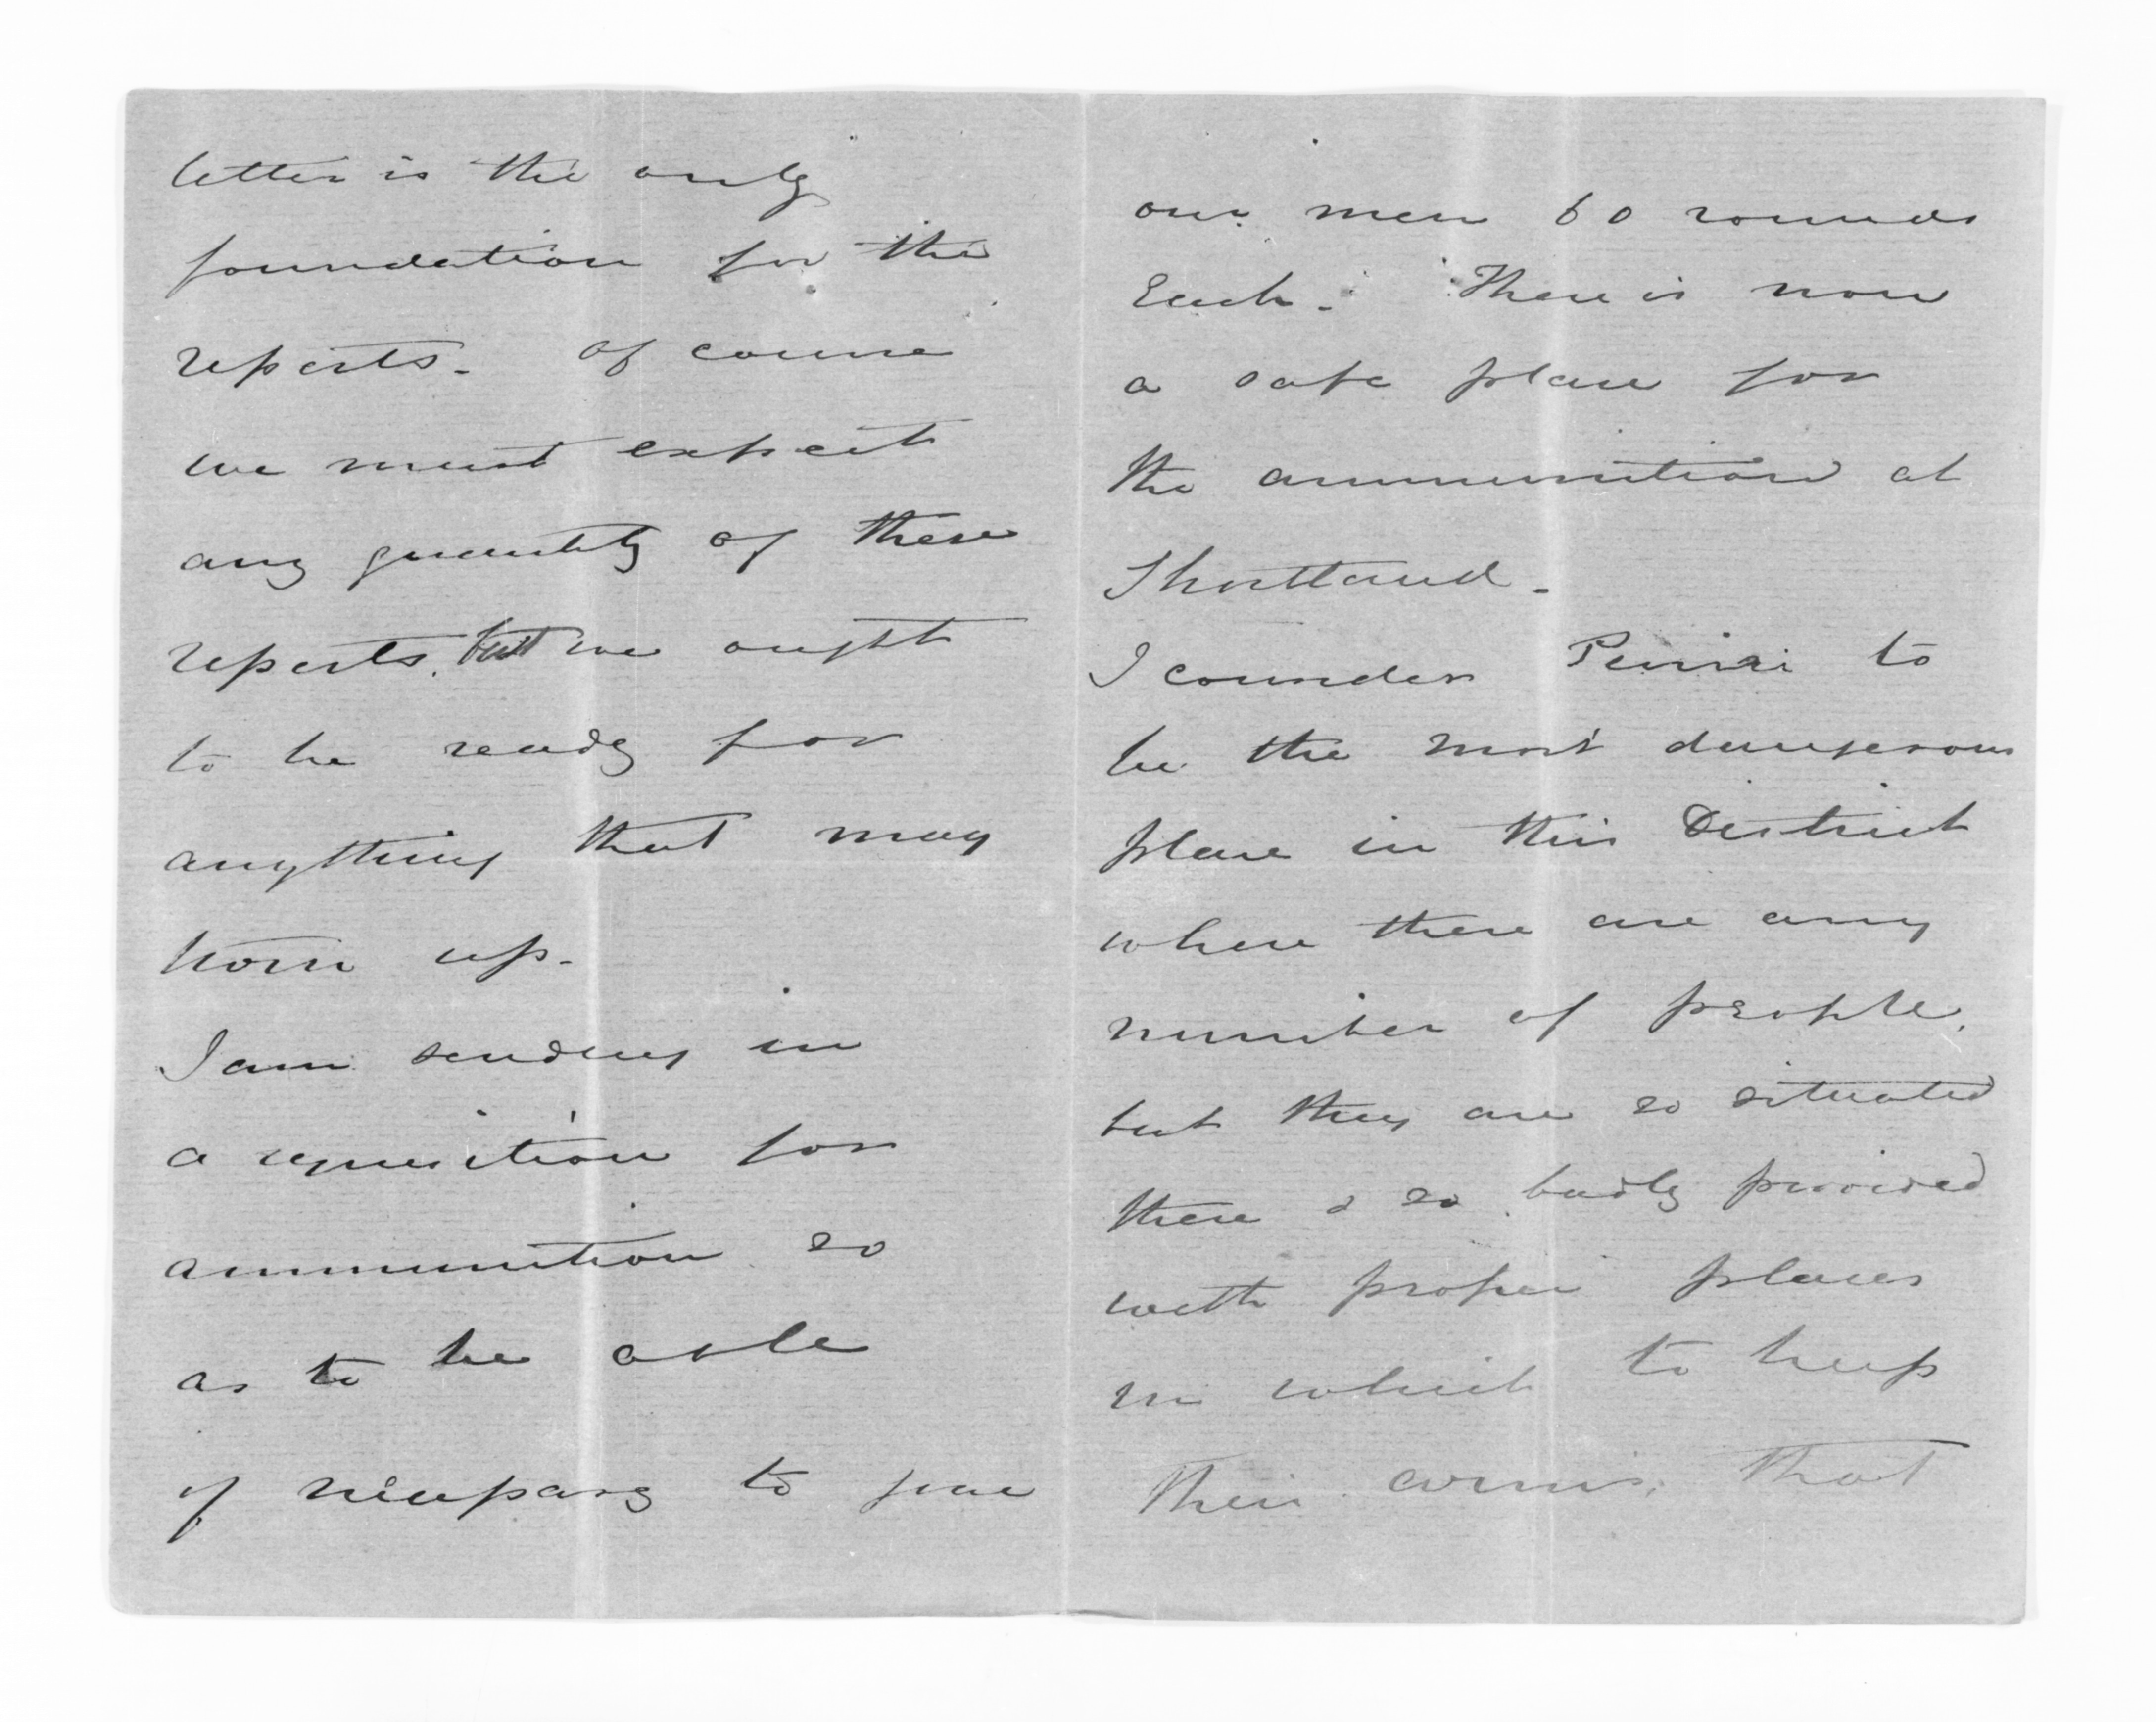 letter is the only
foundation for the
reports. Of course
we must expect
any quantity of these
reports, but we ought
to be ready for
anything that may
turn up.
I am sending in
a requisition for
ammunition so
as to be able
if necessary to give
our men 60 rounds
Each. There is now
a safe place for
the ammunition at
Shortland.
I consider Puriri to
be the most dangerous
place in this District
where there are any
number of people,
but they are so situated
there & so badly provided
with proper places
in which to keep
their arms, that